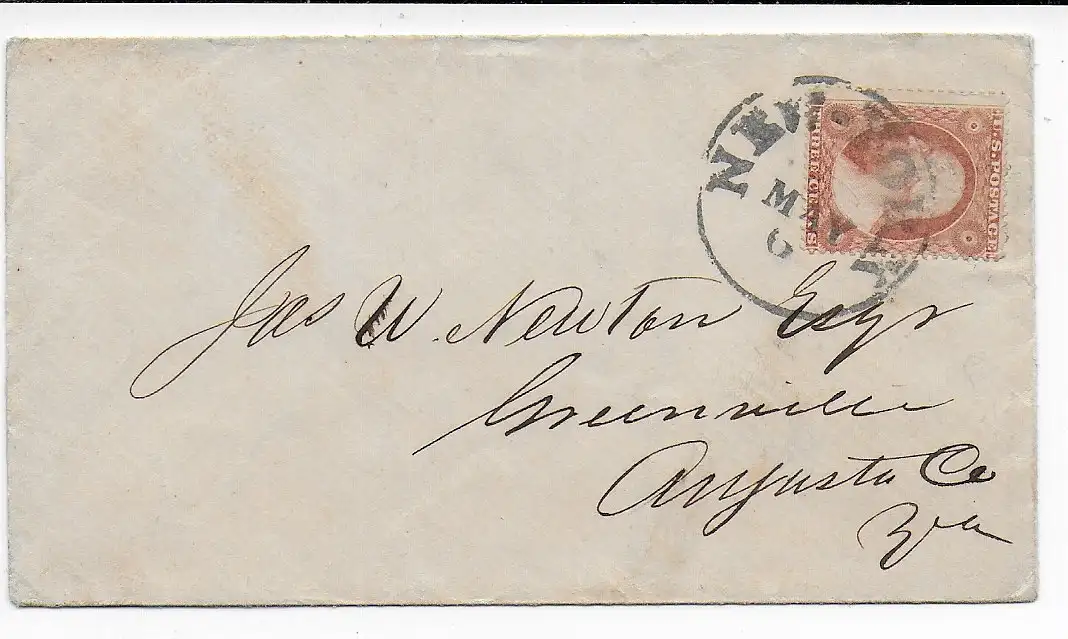 NEW YORK
MAY
6
U.S. POSTAGE
THREE CENTS
Jas W. Newton Esqr
Greenville
Augusta Co
Va